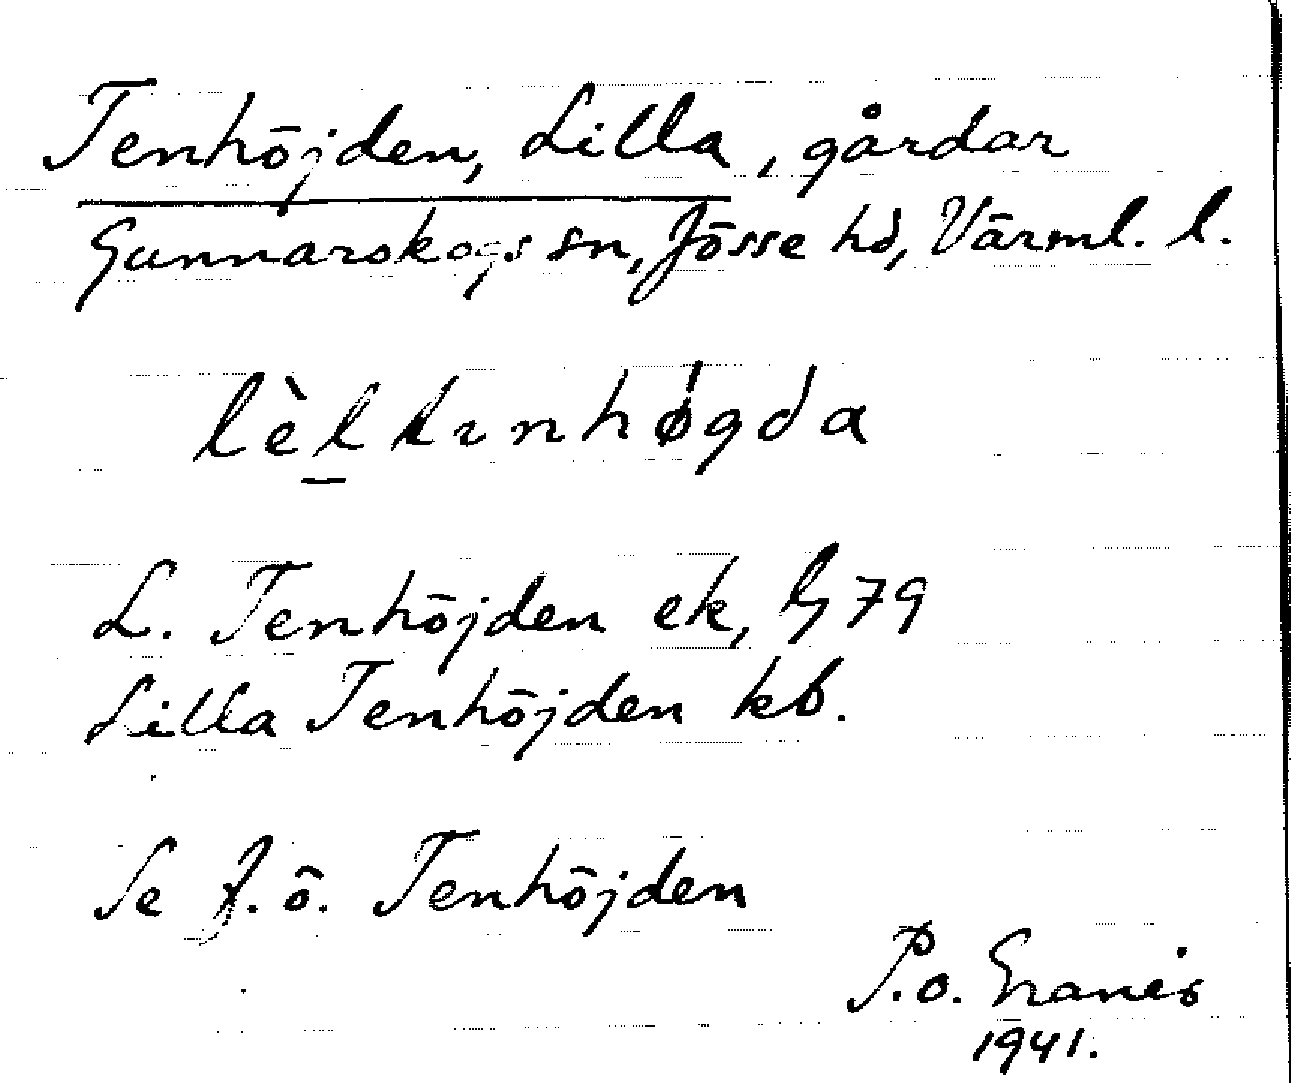 Tenhöjden, Lilla, gårdar
Gunnarskogs sn, Jösse hd, Värml. l.
lèl tɩnhøgda
L. Tenhöjden ek, G 79
Lilla Tenhöjden kb.
Se f. ö. Tenhöjden
P.o.
1941.